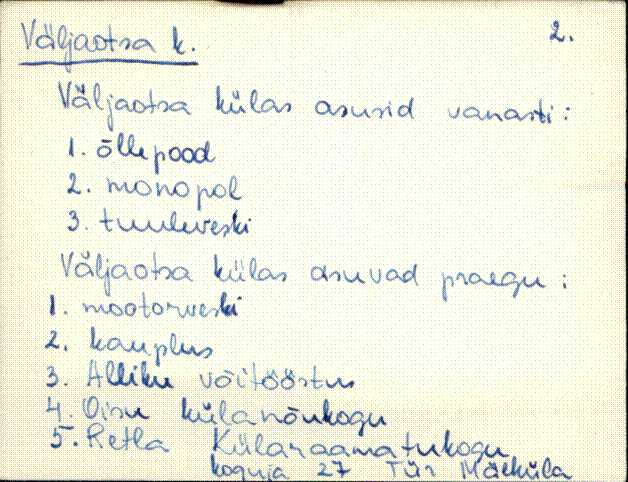 Väljaotsa k. 2.
Väljaotsa külas asusid vanasti:
1. õllepood
2. monopol
3. tuuleveski
Väljaotsa külas asuvad praegu:
1. mootorveski
2. kauplus
3. Alliku võitööstus
4. Oisu külanõukogu
5. Retla Külaraamatukogu
koguja 27 Tür Mäeküla